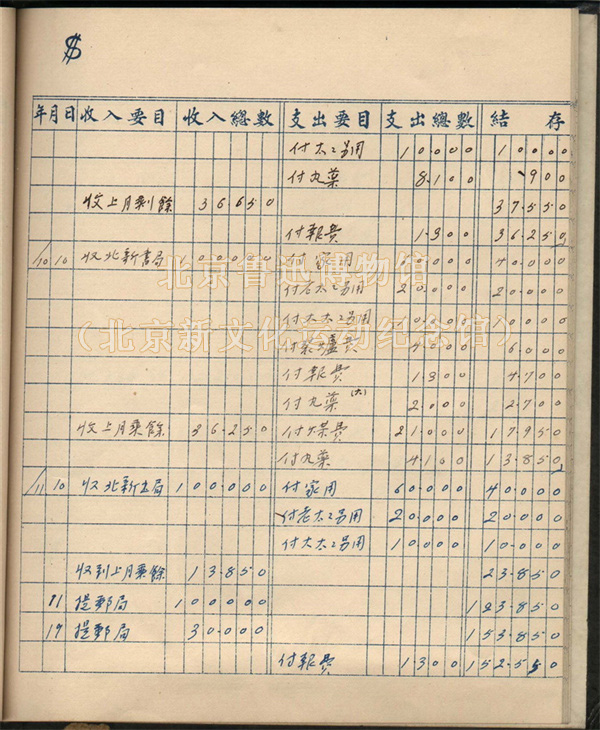 $
年月日 收入要目 收入總數 支出要目 支出總數 結存
付太二另用 10.000 10.000
付丸藥 8.100 .900
收上月剩餘 36.650 37.550
付報費 1.300 36.250
10 10 收北新書局 100.000 付家用 40.000
付老太二另用 20.000 20.000
付大太二另用
付 爐費 4.000 6.000
付報費 1.300 4.700
付丸藥(大) 2.000 2.700
收上月乘餘 36.250 付 費 21.000 17.950
付丸藥 4.100 13.850
11 10 收北新書局 100.000 付家用 60.000 40.000
付老太二另用 20.000 20.000
付大太二另用 10.000 10.000
收到上月乘餘 13.850 23.850
11 提郵局 100.000 123.850
17 提郵局 30.000 153.850
付報費 1.300 152.550
北京鲁迅博物馆
(北京新文化运动纪念馆)